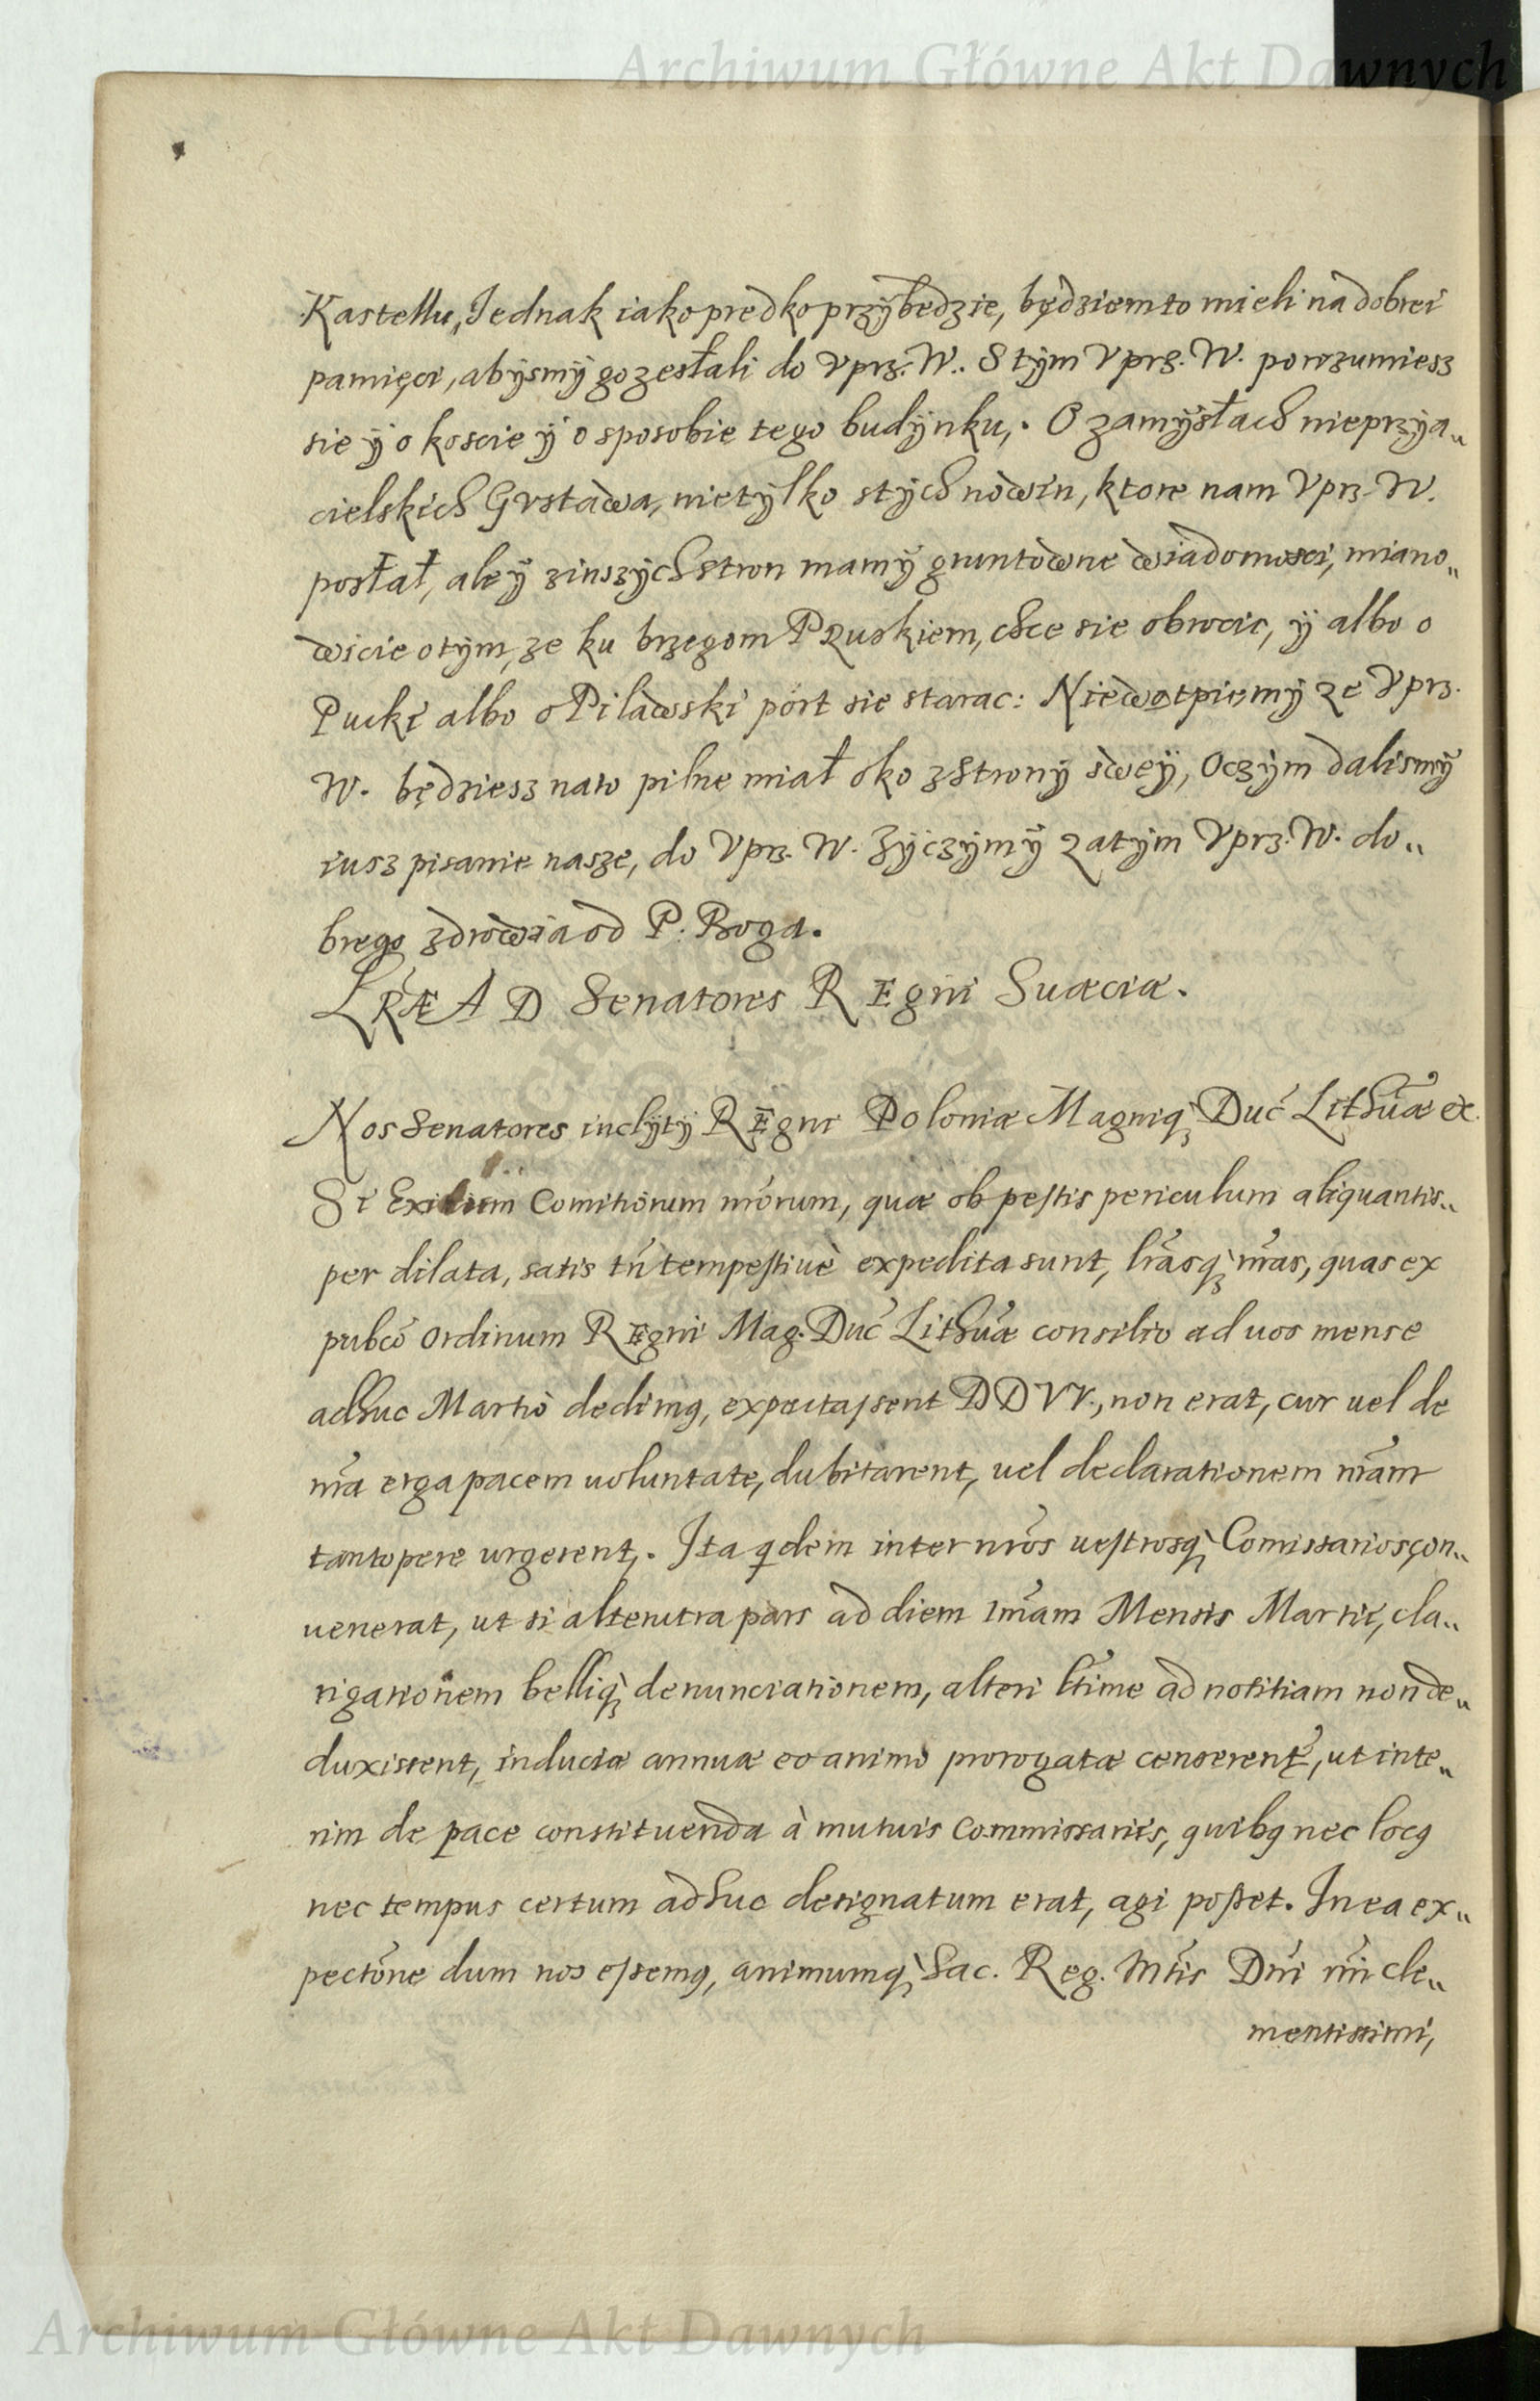 Archiwum Główne Akt Dawnych
Kastellu, Jednak iako predko przÿbedzie, będziem to mieli na dobrei
pamięci, abÿsmÿ go zesłali do Vprz. W. S tÿm Vprz. W. porozumiesz
sie ÿ o koscie ÿ o sposobie tego budÿnku,. O zamÿsłach nieprzÿa„
cielskich Gvstawa, nietÿlko stÿch nowin, ktore nam Vprz. W.
posłał, ale ÿ zinszÿch stron mamÿ gruntowne wiadomosci, miano„
wicie otÿm, ze ku brzegom Pruskiem, chce sie obrocic, ÿ albo o
Pucki albo o Pilawski port sie starac: Niewątpiemÿ ze Vprz.
W. będziesz nato pilne miał oko z strony sweÿ, Oczÿm dalismÿ
iusz pisanie nasze, do Vprz. W. Zÿczÿmÿ zatÿm Vprz. W. do„
brego zdrowia od P. Boga.
LRÆ AD Senatores REgni Suæciæ.
Nos Senatores inclÿtÿ REgni Poloniæ Magniq3 Duc̃ Lithũæ &c.
Si Exitum Comitiorum nr̃orum, quæ ob pestis periculum aliquantis„
per dilata, satis tñ tempestiuè expedita sunt, lr̃asq3 nr̃as, quas ex
pubcõ ordinum REgni Mag. Duc̃ Lithũæ consilio ad uos mense
adhuc Martio dedimq, expectassent DD VV., non erat, cur uel de
nr̃a erga pacem uoluntate, dubitarent, uel declarationem nr̃am
tantopere urgerent,. Ita qdem inter nr̃os uestrosq3 Comissarios con„
uenerat, ut si alterutra pars ad diem 1mam Mensis Martii, cla„
rigationem belliq3 denunciationem, alteri ltĩme ad notitiam non de„
duxissent, induciæ annuæ eo animo prorogatæ censerent̃, ut inte„
rim de pace constituenda à mutuis Commissariis, quibq nec locq
nec tempus certum adhuc designatum erat, agi posset. In ea ex„
pectõne dum nos essemq, animumq3 Sac. Reg. Mt̃is Dñi nr̃i cle„
mentissimi,
Archiwum Główne Akt Dawnych